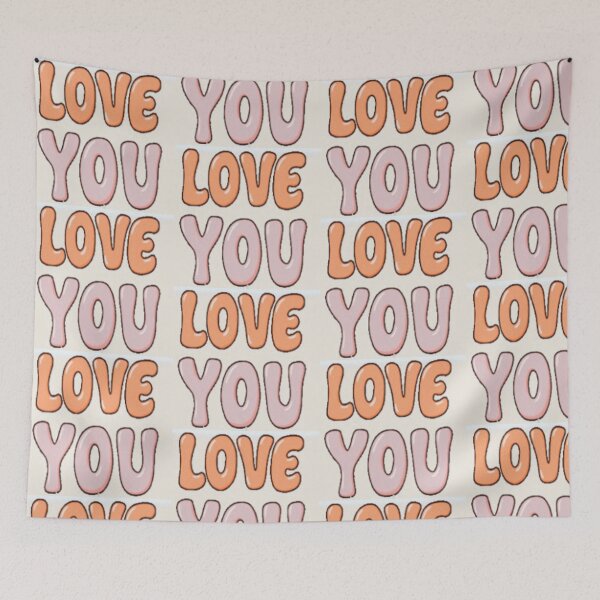 LOVE YOU LOVE YOU
YOU LOVE YOU LOVE
LOVE YOU LOVE YOU
YOU LOVE YOU LOVE
LOVE YOU LOVE YOU
YOU LOVE YOU LOVE
LOVE YOU LOVE YOU